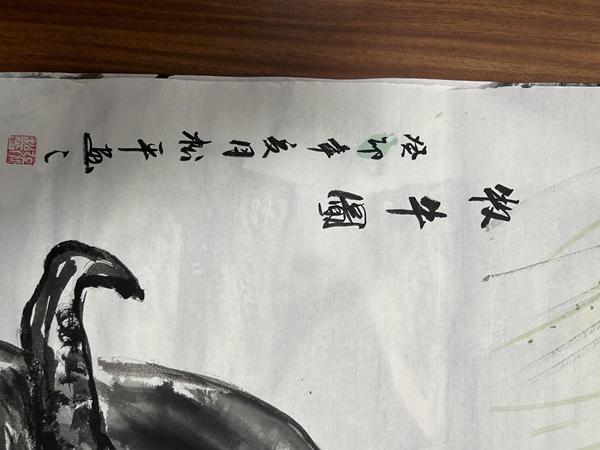 牧牛圖
癸卯年夏月松平画之